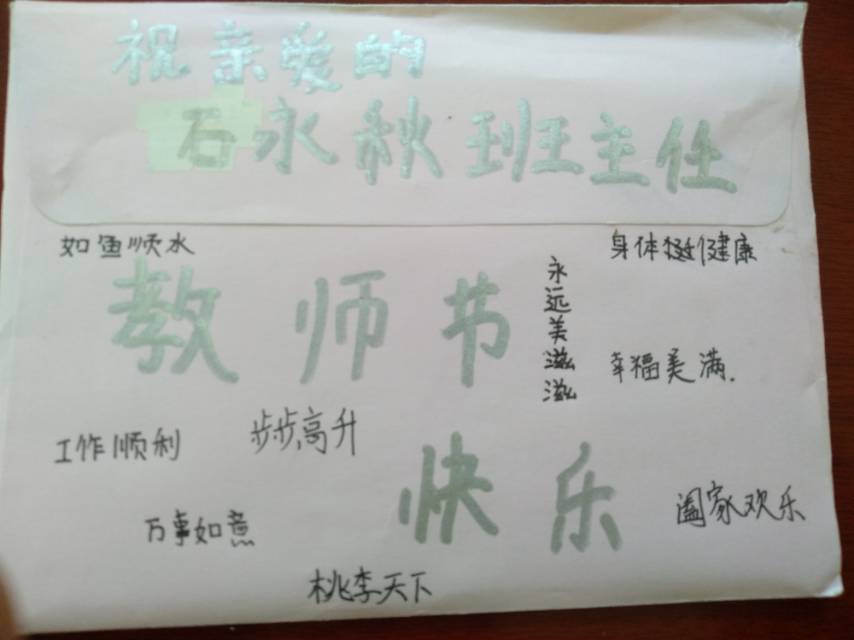 祝亲爱的
石永秋班主任
如鱼顺水
身体挺健康
永远美滋滋
教师节
幸福美满.
工作顺利
步步高升
快乐
阖家欢乐
万事如意
桃李天下